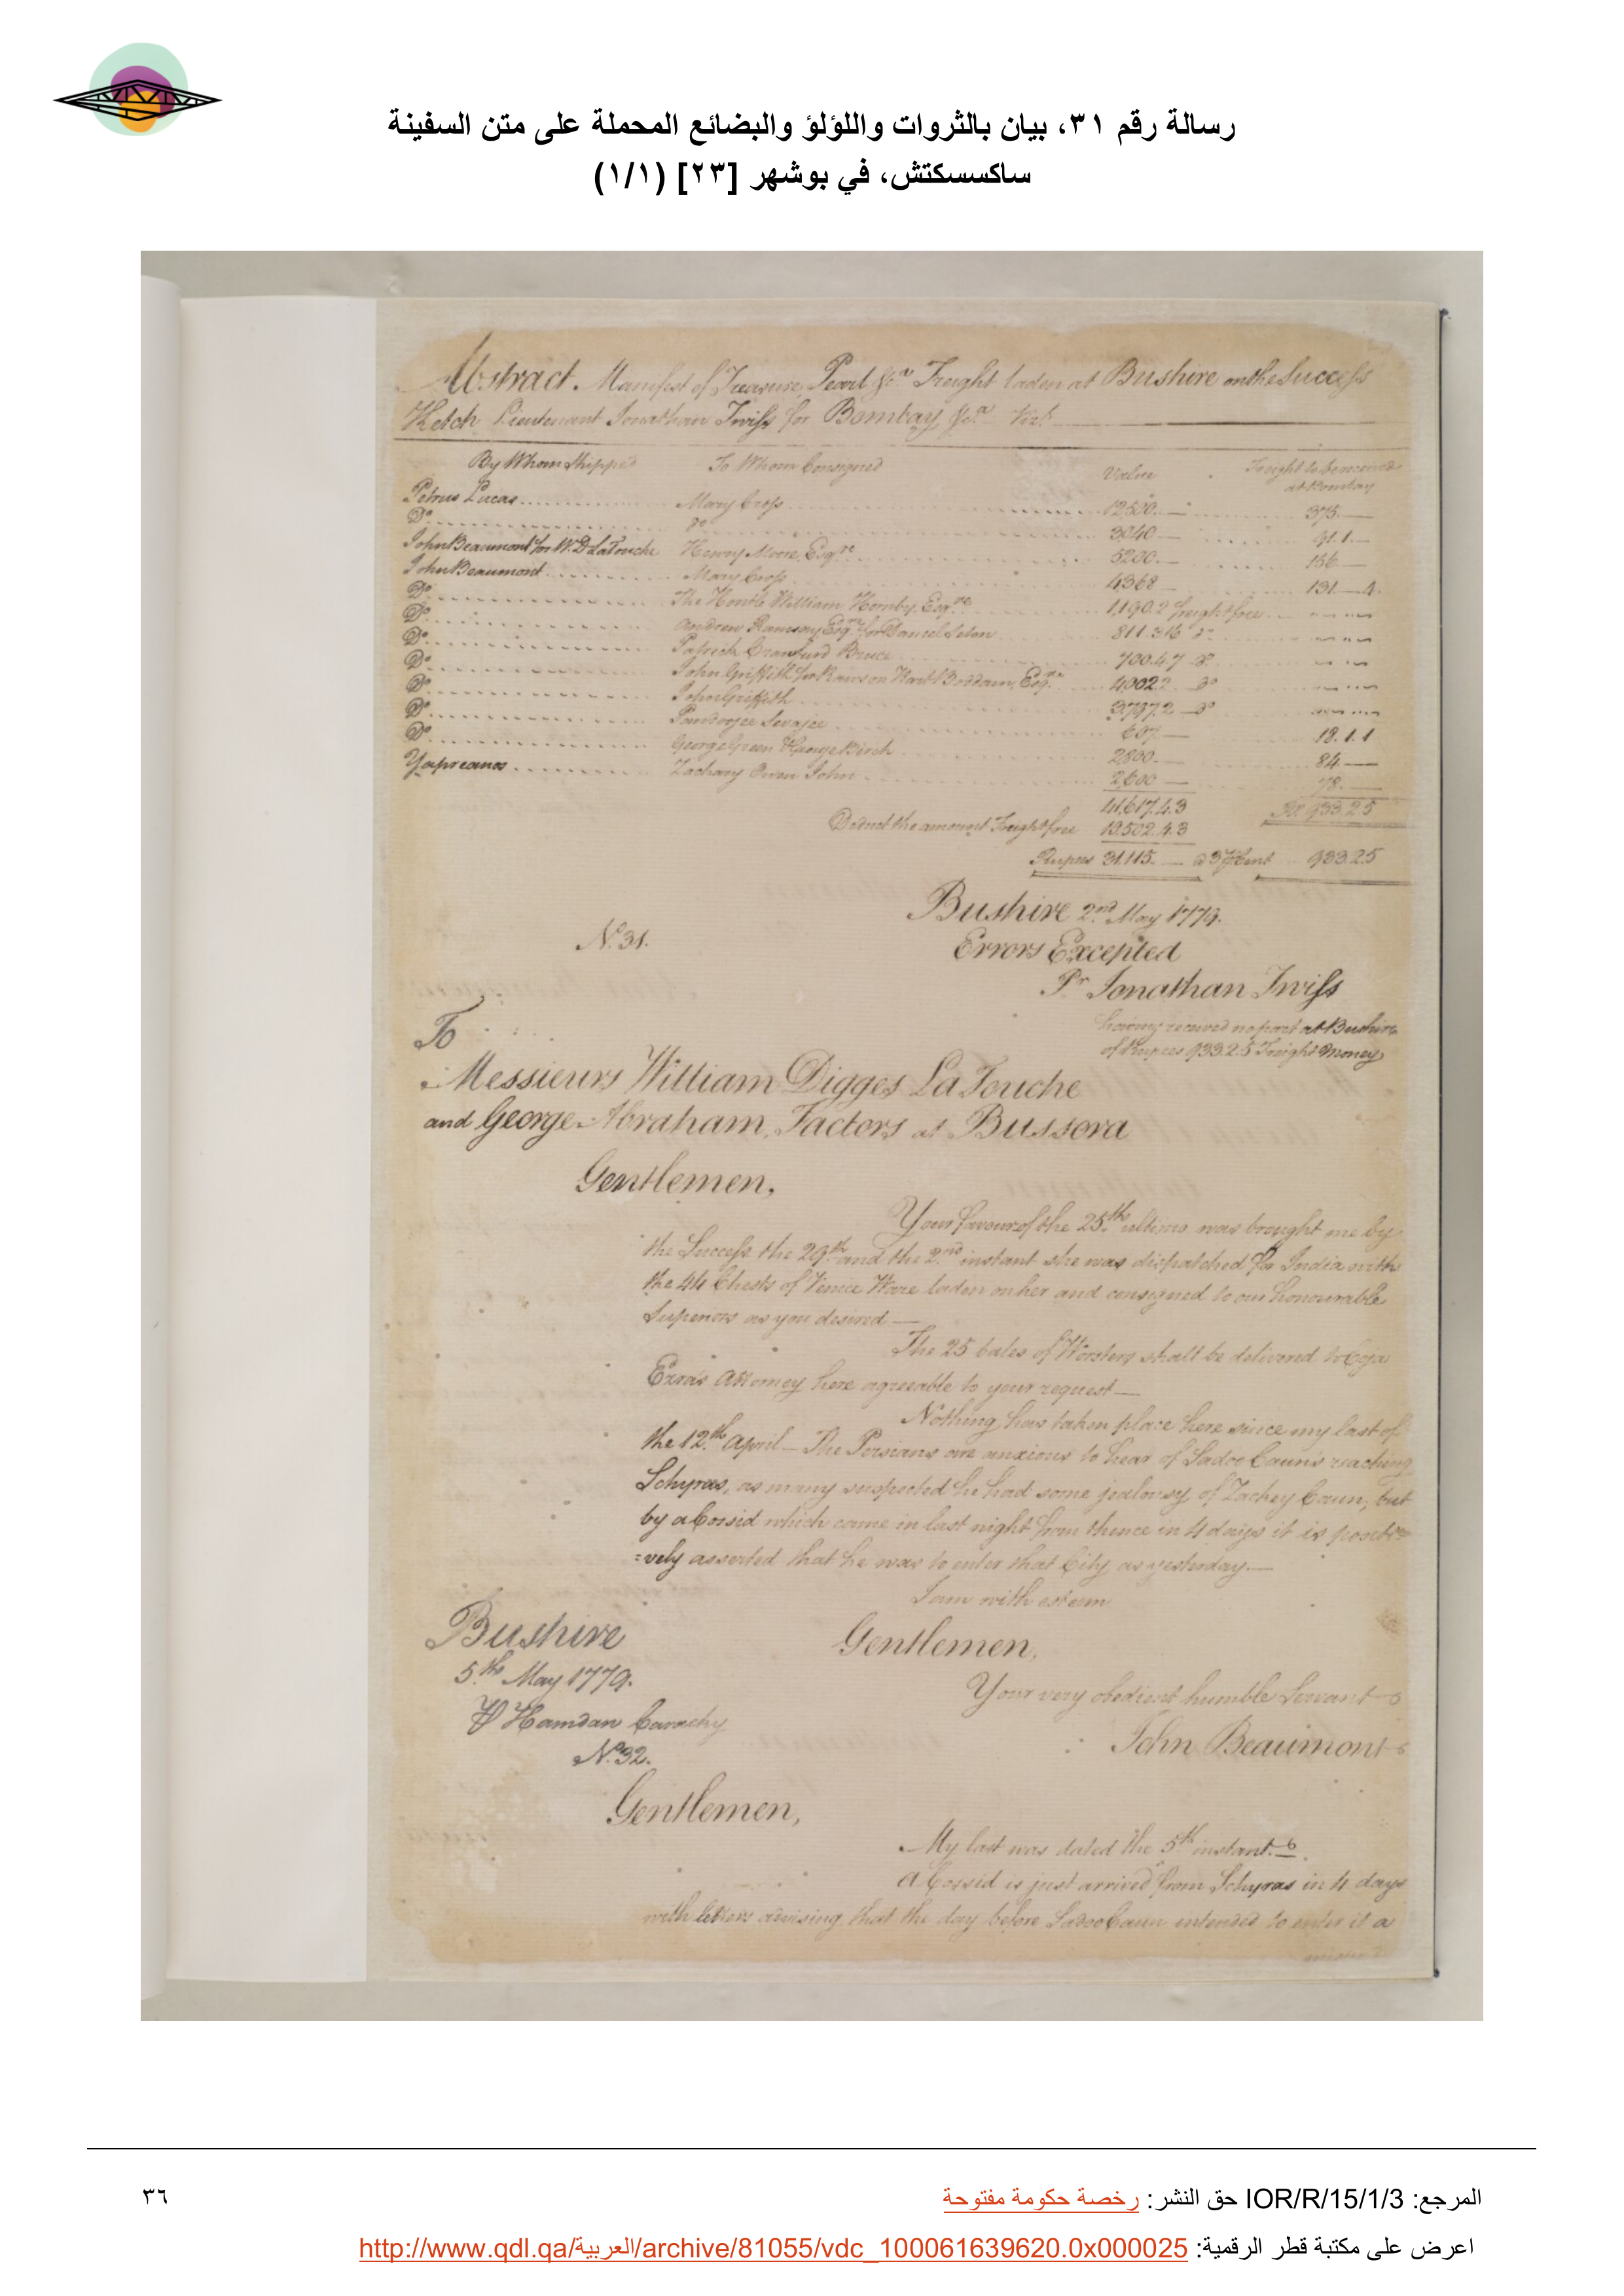 رسالة رقم ٣١، بيان بالثروات واللؤلؤ والبضائع المحملة على متن السفينة
ساكسسكتش، في بوشهر [٢٣] (١/١)
Abstract. Manifest of Treasure, Pearl &c.a Freight laden at Bushire on the Success
Ketch Lieutenant Jonathan Twiss for Bombay &c.a Vizt
By Whom Shipped To Whom Consigned Value Freight to be received at Bombay
Petrus Lucas Mary Cross 12500.— 375.—
Do. do 3040— 91.1—
John Beaumont for W. D. LaTouche Henry Moore Esqre 5200.— 156—
John Beaumont Mary Cross 4368 131—4.
Do. The Honble William Hornby, Esqre 1190.2 freight free
Do. Andrew Ramsay Esqre for Daniel Seton 811.3.16 do
Do. Patrick Cranfurd Bruce 700.47 do
Do. John Griffith for Rawson Hart Boddam, Esqre 4002.2 do
Do. John Griffith 3797.2 — do
Do. 607— 18.1.1
Do. George Green & George Birch 2800.— 84—
Yapreanos Zachary Owen John 2600— 78.—
41,617.4.3 Rs. 933.2.5
Deduct the amount Freight free 10,502.4.3
Rupees 31,115.— @ 3 P Cent 933.2.5
Bushire 2nd May 1779.
Errors Excepted
Pr Jonathan Twiss
having received no part at Bushire
of Rupees 933.2.5 Freight Money
No. 31.
To
Messieurs William Digges LaTouche
and George Abraham, Factors at Bussora
Gentlemen,
Your favour of the 25th ultimo was brought me by
the Success the 29th and the 2nd instant she was dispatched for India with
the 44 Chests of Venice Ware laden on her and consigned to our honourable
Superiors as you desired —
The 25 bales of shall be delivered to Coja
Ezra's Attorney here agreeable to your request —
Nothing has taken place here since my last of
the 12th April — The Persians are anxious to hear of Sadoo Caun's reaching
Schyras, as many suspected he had some jealousy of Zachey Caun; but
by a Cossid which came in last night from thence in 4 days it is positi=
=vely asserted that he was to enter that City as yesterday.—
I am with esteem
Gentlemen,
Bushire
5th May 1779.
Your very obedient humble Servant
P Hamdan Carachy
John Beaumont
No. 32.
Gentlemen,
My last was dated the 5th instant.
A Cossid is just arrived from Schyras in 4 days
with letters advising that the day before Sadoo Caun intended to enter it a
المرجع: IOR/R/15/1/3 حق النشر: رخصة حكومة مفتوحة ٣٦
اعرض على مكتبة قطر الرقمية: http://www.qdl.qa/العربية/archive/81055/vdc_100061639620.0x000025